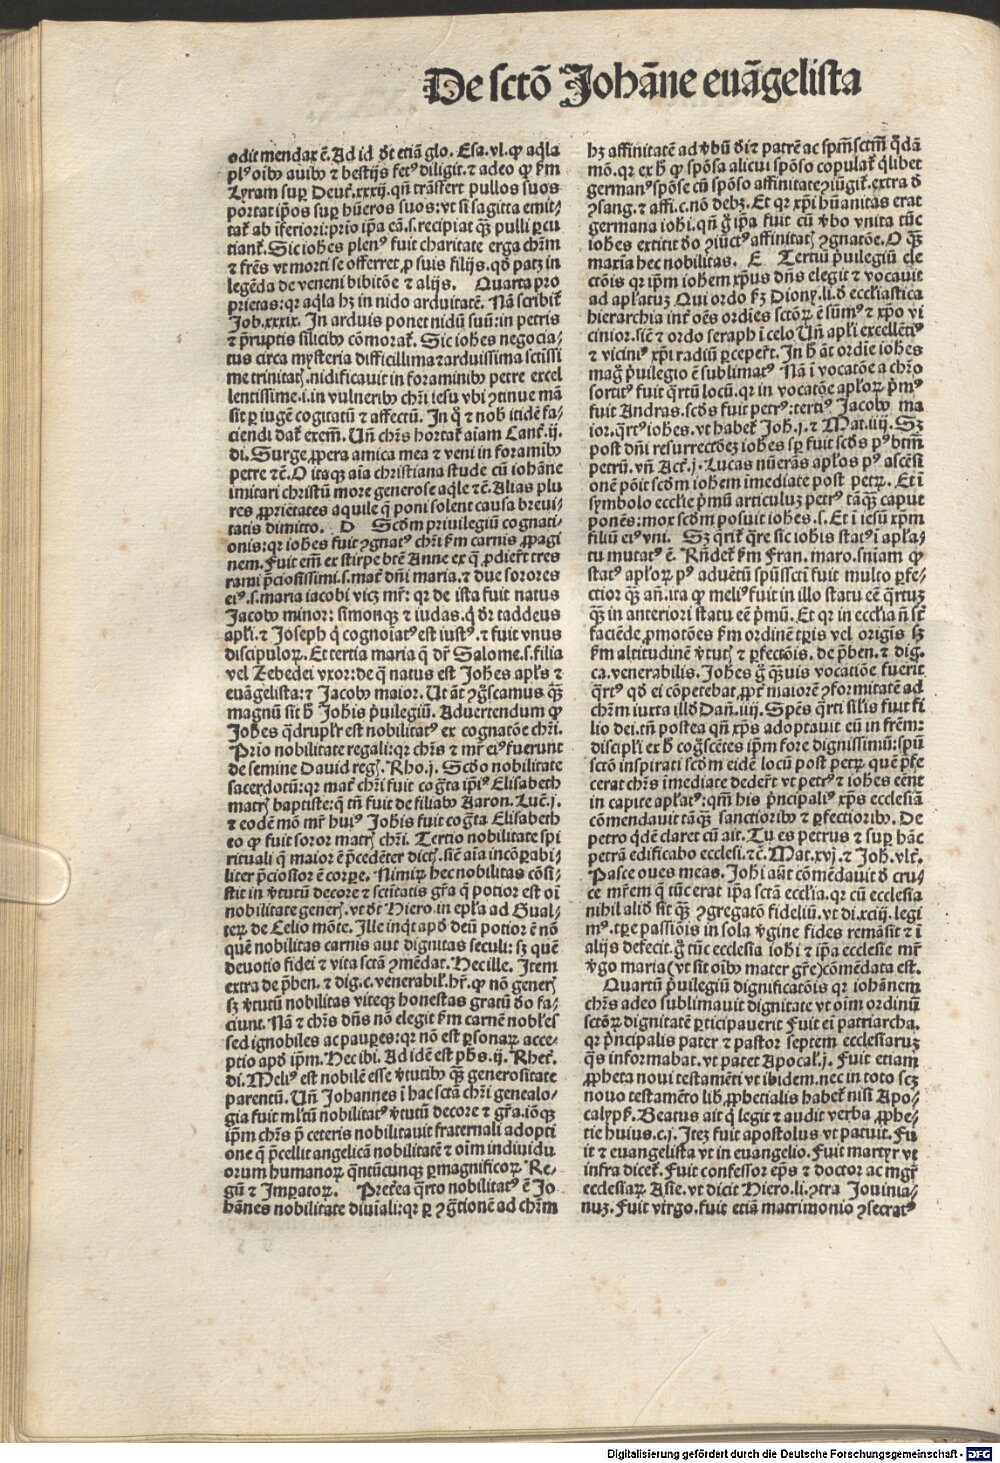 De sctō Johāne euāgelista
odit mendax ē. Ad id ꝺt etiā glo. Esa. vl. ꝙ aq̄la
plꝰ oībꝰ auibꝰ ⁊ bestijs fetꝰ diligit. ⁊ adeo ꝙ ẜm
Lyram suꝑ Deut̄. xxxij. qn̄ trāsfert pullos suos
portat ip̄os suꝑ hūeros suos: vt si sagitta emit/
tat̄ ab īferiori: prio ip̄a eā .s. recipiat qꝫ pulli ꝑcu
tiant̄. Sic iohēs plenꝰ fuit charitate erga chr̄m
⁊ fr̄es vt morti se offerret ꝓ suis filijs. qd̄ patꝫ in
legēda de veneni bibitōe ⁊ alijs. Quarta pro
prietas: qꝛ aq̄la hꝫ in nido arduitatē. Nā scribit̄
Job. xxxix. In arduis ponet nidū suū: in petris
⁊ p̄ruptis silicibꝰ cōmorat̄. Sic iohēs negocia/
tus circa mysteria difficillima ⁊ arduissima sctissi
me trinitatꝭ. nidificauit in foraminibꝰ petre excel
lentissime .i. in vulneribꝰ chr̄i iesu vbi ꝯtinue mā
sit ꝑ iugē cogitatū ⁊ affectū. In q̄ ⁊ nob̄ itidē fa/
ciendi dat̄ exem̄. Vn̄ chr̄s hortat̄ aīam Cant̄. ij.
di. Surge ꝓpera amica mea ⁊ veni in foramibꝰ
petre ⁊c̄. O itaqꝫ aīa christiana stude cū iohāne
imitari christū more generose aq̄le ⁊c̄. Alias plu
res ꝓprietates aquile q̄ poni solent causa breui/
tatis dimitto. D Scd̄m priuilegiū cognati/
onis: qꝛ iohēs fuit ꝯgnatꝰ chr̄i ẜm carnis ꝓpagi
nem. Fuit em̄ ex stirpe btē Anne ex q̄ ꝓdier̄t tres
rami p̄ciosissimi .s. mat̄ dn̄i maria. ⁊ due sorores
eiꝰ .s. maria iacobi vicꝫ mr̄: qꝛ de ista fuit natus
Jacobꝰ minor: simonqꝫ ⁊ iudas. q̄ dr̄ taddeus
apl̄i. ⁊ Joseph q̄ cognoīatꝰ est iustꝰ. ⁊ fuit vnus
discipuloꝝ. Et tertia maria q̄ dr̄ Salome .s. filia
vel Zebedei vxor: de q̄ natus est Johēs apl̄s ⁊
euāgelista: ⁊ Jacobꝰ maior. Ut āt ꝯg̅scamus qꝫ̄
magnū sit ꝧ Joh̄is p̄uilegiū. Aduertendum ꝙ
Johēs q̄drupl̄r est nobilitatꝰ ex cognatōe chr̄i.
Prīo nobilitate regali: qꝛ chr̄s ⁊ mr̄ eiꝰ fuerunt
de semine Dauid regꝭ. Rho. j. Scd̄o nobilitate
sacerdotū: qꝛ mat̄ chr̄i fuit cog̅ta ip̄iꝰ Elisabeth
matrꝭ baptiste: q̄ tn̄ fuit de filiabꝰ Aaron. Luē. j.
⁊ eodē mō mr̄ huiꝰ Joh̄is fuit cog̅ta Elisabeth
eo ꝙ fuit soror matrꝭ chr̄i. Tertio nobilitate spi
rituali q̄ maior ē p̄cedēter dictꝭ. siē aīa incōꝑabi/
liter p̄ciosior ē corꝑe. Nimiꝝ hec nobilitas cōsi/
stit in v̄tutū decore ⁊ sct̄itatis gr̄a q̄ potior est oī
nobilitate generꝭ. vt ꝺt Hiero. in epl̄a ad Gual/
teꝝ de Celio mōte. Ille inq̄t apd̄ deū potior ē nō
quē nobilitas carnis aut dignitas seculi: sꝫ quē
deuotis fidei ⁊ vita sctā ꝯmēdat. Hec ille. Item
extra de p̄ben. ⁊ dig. c. venerabil̄. hr̄. ꝙ nō generꝭ
sꝫ v̄tutū nobilitas viteqꝫ honestas gratū do fa/
ciunt. Nā ⁊ chr̄s dn̄s nō elegit ẜm carnē nobl̄es
sed ignobiles ac pauꝑes: qꝛ nō est ꝑsonaꝝ acce/
ptio apd̄ ip̄m. Hec ibi. Ad idē est ph̄s. ij. Rhet̄.
di. Meliꝰ est nobilē esse v̄tutibꝰ qꝫ̄ generositate
parentū. Vn̄ Johannes ī hac sctā chr̄i genealo/
gia fuit ml̄tū nobilitatꝰ v̄tutū decore ⁊ gr̄a. iōqꝫ
ip̄m chr̄s p̄ ceteris nobilitauit fraternali adopti
one q̄ p̄cellit angelicā nobilitatē ⁊ oīm indiuidu
orum humanoꝝ q̄ntūcunqꝫ ꝑmagnificoꝝ Re/
gū ⁊ Impatoꝝ. Preterea q̄rto nobilitatꝰ ē Jo
hānes nobilitate diuīali: qꝛ ꝑ ꝯg̅tionē ad chr̄m
hꝫ affinitatē ad v̄bū ꝺī ⁊ patrē ac spm̄sctm̄ q̄dā
mō. qꝛ ex ꝧ ꝙ spōsa alicui spōso copulat̄ q̄libet
germanꝰ spōse cū spōso affinitate ꝯiūgit̄. extra ꝺ
ꝯsang. ⁊ affi. c. nō debꝫ. Et qꝛ xp̄i hūanitas erat
germana iohi. qn̄ g̊ ip̄a fuit cū v̄bo vnita tūc
iohēs extitit ꝺo ꝯiūctꝰ affinitatꝭ ꝯgnatōe. O qꝫ̄
maxīa hec nobilitas. E Tertiū p̄uilegiū ele
ctōis qꝛ ip̄m iohem xp̄us dn̄s elegit ⁊ vocauit
ad apl̄atuꝫ Qui ordo ẜꝫ Diony. li. ꝺ eccl̄iastica
hierarchia int̄ oēs ordīes sctōꝝ ē sūmꝰ ⁊ xp̄o vi
cinior. siē ⁊ ordo seraph ī celo Vn̄ apl̄i excellētiꝰ
⁊ viciniꝰ xp̄i radiū ꝑceper̄t. In ꝧ āt ordīe iohēs
mag̊ p̄uilegio ē sublimatꝰ Nā ī vocatōe a chr̄o
sortitꝰ fuit q̄rtū locū. qꝛ in vocatōe apl̄oꝝ p̄mꝰ
fuit Andras. scd̄s fuit petrꝰ: tertiꝰ Jacobꝰ ma
ior. q̄rtꝰ iohēs. vt habet̄ Joh. j. ⁊ Mat. iiij. Sꝫ
post dn̄i resurrectōeꝫ iohēs sꝑ fuit scd̄s pꝰ btm̄
petrū. vn̄ Act̄. j. Lucas nūerās apl̄os pꝰ ascēsi
onē pōit scd̄m iohem īmediate post petꝝ. Et ī
symbolo eccl̄ie p̄mū articuluꝫ petrꝰ tāqꝫ̄ caput
ponēs: mox scd̄m posuit iohēs .s. Et ī iesū xp̄m
filiū eiꝰ vni. Sꝫ q̄rit̄ q̄re sic iohis statꝰ ī apl̄a/
tu mutatꝰ ē. Rn̄det̄ ẜm Fran. maro. sn̄iam ꝙ
statꝰ apl̄oꝝ pꝰ aduētū spūssctī fuit multo ꝑfe/
ctior qꝫ̄ añ. ita ꝙ meliꝰ fuit in illo statu eē q̄rtuꝫ
qꝫ̄ in anteriori statu eē p̄mū. Et qꝛ in eccl̄ia n̄ sē̄
faciēde ꝓmotōes ẜm ordinē tꝑis vel origīs sꝫ
ẜm altitudinē v̄tutꝭ ⁊ ꝑfectōis. de p̄ben. ⁊ dig.
ca. venerabilis. Johēs g̊ qꝫ̄uis vocatiōe fuerit
q̄rtꝰ qd̄ ei cōpetebat ꝓpt̄ maiorē ꝯformitatē ad
chr̄m iuxta illd̄ Dañ. iiij. Spēs q̄rti sil̄is fuit fi
lio dei. tn̄ postea qn̄ xp̄s adoptauit eū in fr̄em:
discipl̄i ex ꝧ cog̅scētes ip̄m fore dignissimū: spū
sctō inspirati scd̄m eidē locū post petꝝ quē p̄fe
cerat chr̄s īmediate deder̄t vt petrꝰ ⁊ iohēs eēnt
in capite apl̄atꝰ: qm̄ his p̄ncipaliꝰ xp̄s ecclesiā
cōmendauit tāqꝫ̄ sanctioribꝰ ⁊ ꝑfectioribꝰ. De
petro q̄dē claret cū ait. Tu es petrus ⁊ suꝑ hāc
petrā edificabo ecclesi. ⁊c̄. Mat. xvj. ⁊ Joh. vlt̄.
Pasce oues meas. Johi aūt cōmēdauit ꝺ cru/
ce mr̄em q̄ tūc erat ip̄a sctā eccl̄ia. qꝛ cū ecclesia
nihil aliд sit qꝫ̄ ꝯgregatō fideliū. vt di. xcij. legi
mꝰ. tꝑe passiōis in sola v̄gine fides remāsit ⁊ ī
alijs defecit. g̊ tūc ecclesia iohi ⁊ ip̄a ecclesie mr̄
v̄go maria (vt sit oībꝰ mater gr̄e) cōmēdata est.
Quartū p̄uilegiū dignificatōis qꝛ iohānem
chr̄s adeo sublimauit dignitate vt oīm ordinū
sctōꝝ dignitatē ꝑticipauerit Fuit eī patriarcha.
qꝛ p̄ncipalis pater ⁊ pastor septem ecclesiaruꝫ
q̄s informabat. vt patet Apocal̄. j. Fuit etiam
ꝓpheta noui testamēti vt ibidem. nec in toto scꝫ
nouo testamēto lib̄ ꝓphetialis habet̄ nisi Apo/
calypß. Beatus ait q̄ legit ⁊ audit verba ꝓphe/
tie huius. c. j. Iteꝫ fuit apostolus vt patuit. Fu
it ⁊ euangelista vt in euangelio. Fuit martyr vt
infra dicet̄. Fuit confessor ep̄s ⁊ doctor ac mgr̄
ecclesiaꝝ Asie. vt dicit Hiero. li. ꝯtra Jouinia/
nuꝫ. Fuit virgo. fuit etiā matrimonio ꝯsecratꝰ
Digitalisierung gefördert durch die Deutsche Forschungsgemeinschaft - DFG